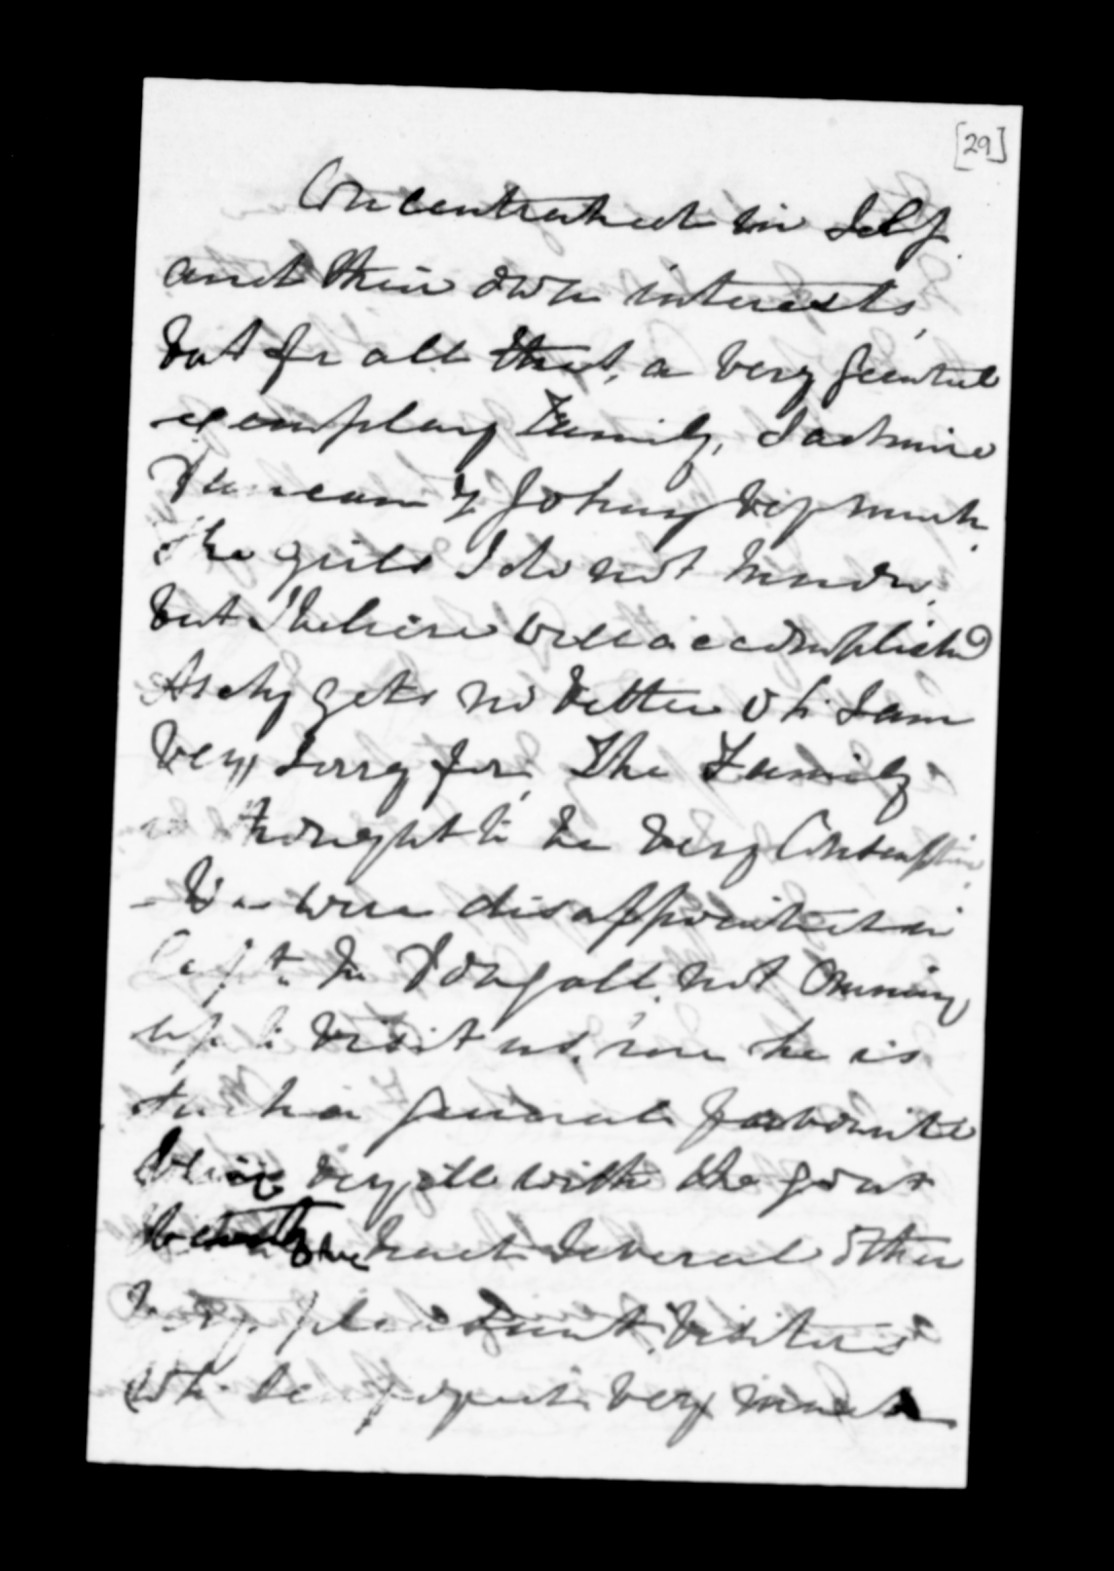 [29]
Concentrated in Self
and their own interests,
but for all that, a very genteel
exemplary Family, I admire
Duncan & Johny very much.
The girls I do not know.
but I believe well accomplished
Archy gets no better oh I am
very sorry for, The Family
thought to be very Consumptive
- We were disappointed in
Capt. Mc Dougall, not Coming
up to visit us, now he is
such a general favourite
being very ill with the gout
he had several other
very pleasant, visitors
who we very much